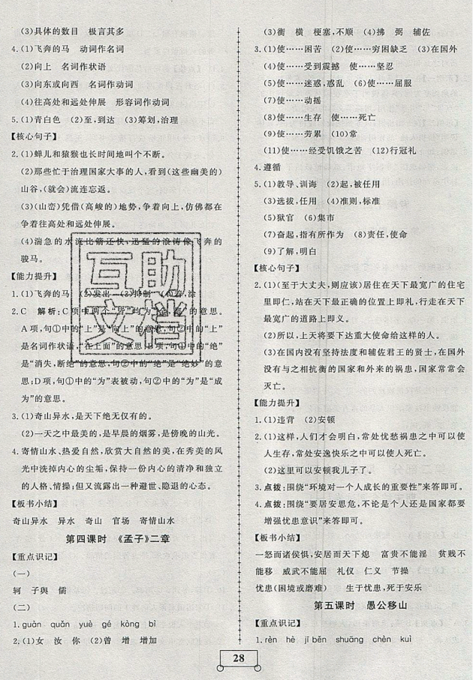 (3)具体的数目　极言其多
4.(1)飞奔的马　动词作名词
(2)向上　名词作状语
(3)向东或向西　名词作动词
(4)往高处和远处伸展　形容词作动词
5.(1)青白色　(2)至，到达　(3)筹划，治理
【核心句子】
2.(1)蝉儿和猿猴也长时间地叫个不断。
(2)那些忙于治理国家大事的人，看到(这些幽美的)
山谷，(就会)流连忘返。
(3)(山峦)凭借(高峻的)地势，争着向上，仿佛都在
争着往高处和远处伸展。
(4)湍急的水流比箭还快，迅猛的浪涛像飞奔的
骏马。
【能力提升】
1.(1)飞奔的马
2.C　解析：C项中两个
A项，句①中的“上”是“向上”的意思，句②中的“上”
是名词作状语，“在上面”的意思；B项，句①中的“绝”
是“消失，断绝”的意思，句②中的“绝”是“绝妙”的意
思；D项，句①中的“为”表被动，句②中的“为”是“成
为”的意思。
3.(1)奇山异水，是天下绝无仅有的。
(2)一天之中最美的，是早晨的烟雾，是傍晚的山光。
4.寄情山水，热爱自然，欣赏大自然的美，在秀美的风
光中洗掉内心的尘垢，保持一个内心的清净和独立
的人格、情操；但又流露出一种避世、隐退的心态。
【板书小结】
奇山异水　异水　奇山　官场　寄情山水
第四课时　《孟子》二章
【重点识记】
(一)
轲　子舆　儒
(二)
1.guǎ　quǎn　yuè　gé　kóng　bì
2.(1)女　汝　你　(2)曾　增　增加
(3)衡　横　梗塞，不顺　(4)拂　弼　辅佐
4.(1)使……困苦　(2)使……穷困缺乏　(3)在国外
(4)使……受到震撼　使……坚忍
(5)使……迷惑，惑乱　(6)使……屈服
(7)使……动摇
(8)使……生存　使……死亡
(9)使……劳累　(10)穷
(11)使……经受饥饿之苦　(12)行冠礼
4.遵循
5.(1)教导、训诲　(2)起，被任用
(3)选拔，任用　(4)准则，标准
(5)狱官　(6)集市
(7)奋起，指有所作为　(8)责任，使命
(9)了解，明白
【核心句子】
2.(1)(至于大丈夫，则应该)居住在天下最宽广的住宅
里即仁，站在天下最正确的位置上即礼，行走在天下
最宽广的道路上即义。
(2)所以，上天将要下达重大使命给这样的人。
(3)在国内没有坚持法度和辅佐君王的贤士，在国外
没有与之相抗衡的国家和外患的国家，国家常常会
灭亡。
【能力提升】
1.(1)违背　(2)安顿
2.(1)这样，人们才会明白，常处忧愁祸患之中可以使
人生存，常处安逸快乐之中可以使人死亡。
(2)这里可以安顿我儿子了。
3.点拨：围绕“环境对一个人成长的重要性”来答即可。
4.点拨：围绕“要居安思危，不论是个人还是国家都要
增强忧患意识”来答即可。
【板书小结】
一怒而诸侯惧，安居而天下熄　富贵不能淫　贫贱不
能移　威武不能屈　礼仪　仁义　节操
忧患(困境或磨难)　生于忧患，死于安乐
第五课时　愚公移山
【重点识记】
1.rèn　hé　jǐ běn　shuāng　chèn　kuì
28
互助
文档